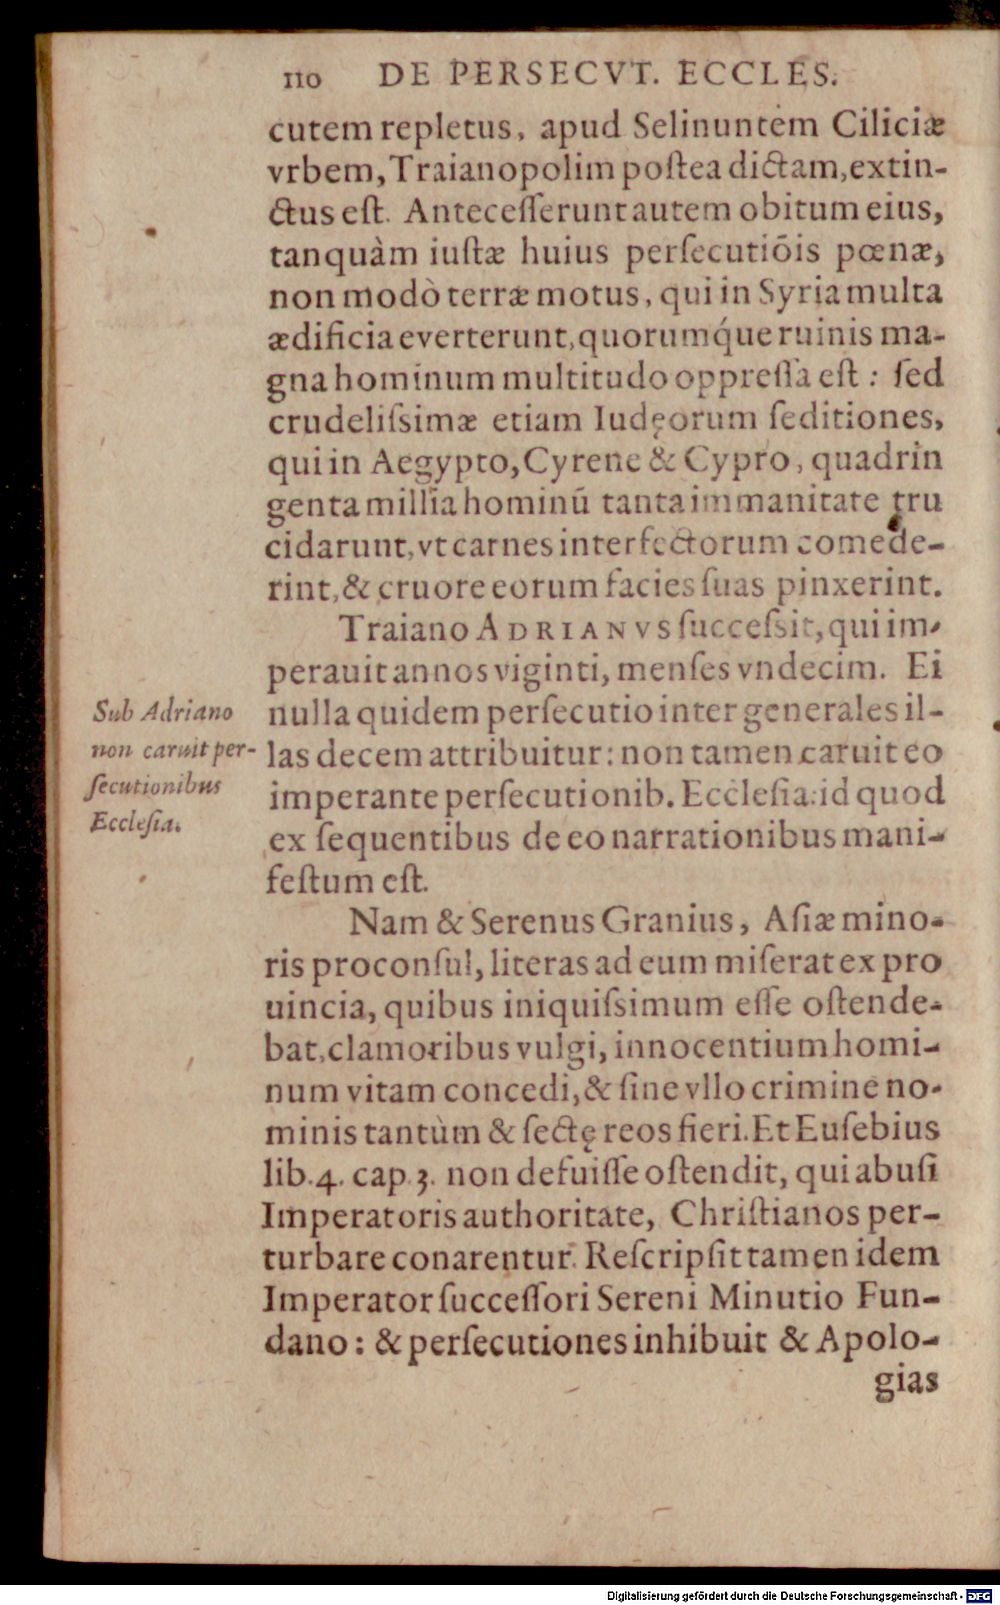 110 DE PERSECVT. ECCLES.
cutem repletus, apud Selinuntem Ciliciæ
vrbem, Traianopolim poſtea dictam, extin-
ctus eſt. Anteceſſerunt autem obitum eius,
tanquàm iuſtæ huius perſecutiōis pœnæ,
non modò terræ motus, qui in Syria multa
ædificia everterunt, quorumq́ue ruinis ma-
gna hominum multitudo oppreſſa eſt: ſed
crudeliſsimæ etiam Iudęorum ſeditiones,
qui in Aegypto, Cyrene & Cypro, quadrin
genta millia hominū tanta immanitate tru
cidarunt, vt carnes interfectorum comede-
rint, & cruore eorum facies ſuas pinxerint.
Traiano ADRIANVS ſucceſsit, qui im-
perauit annos viginti, menſes vndecim. Ei
nulla quidem perſecutio inter generales il-
las decem attribuitur: non tamen caruit eo
imperante perſecutionib. Eccleſia: id quod
ex ſequentibus de eo narrationibus mani-
feſtum eſt.
Sub Adriano
non caruit per-
ſecutionibus
Eccleſia.
Nam & Serenus Granius, Aſiæ mino-
ris proconſul, literas ad eum miſerat ex pro
uincia, quibus iniquiſsimum eſſe oſtende-
bat, clamoribus vulgi, innocentium homi-
num vitam concedi, & ſine vllo crimine no-
minis tantùm & ſectę reos fieri. Et Euſebius
lib. 4. cap. 3. non defuiſſe oſtendit, qui abuſi
Imperatoris authoritate, Chriſtianos per-
turbare conarentur. Reſcripſit tamen idem
Imperator ſucceſſori Sereni Minutio Fun-
dano: & perſecutiones inhibuit & Apolo-
gias
Digitalisierung gefördert durch die Deutsche Forschungsgemeinschaft - DFG